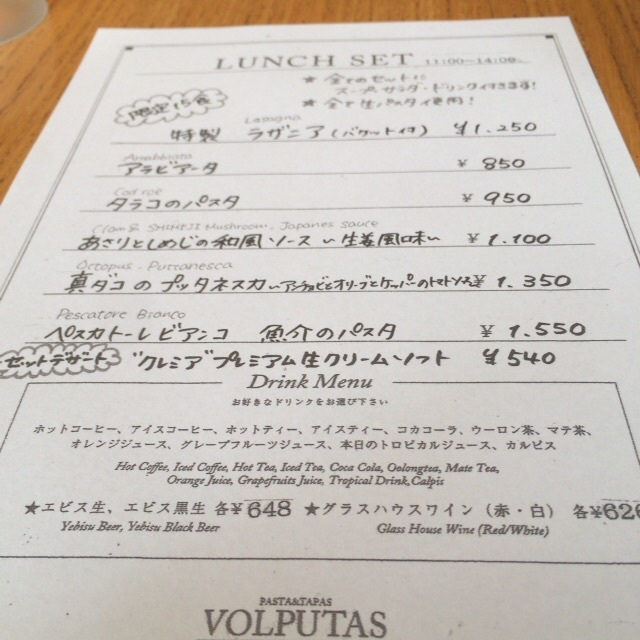 LUNCH SET 11:00~14:00
★ 全てのセットに
スープ・サラダ・ドリンク付きます!
★ 全て生パスタ使用!
限定15食
Lasagna
特製 ラザニア(バケット付) ¥1.250
Arrabbiata
アラビアータ ¥ 850
Cod roe
タラコのパスタ ¥ 950
Clam & SHIMEJI Mushroom. Japanes sauce
あさりとしめじの和風ソース 〜生姜風味〜 ¥ 1.100
Octopus. Puttanesca
真ダコのプッタネスカ 〜アンチョビとオリーブとケッパーのトマトソース ¥ 1.350
Pescatore Bianco
ペスカトーレビアンコ 魚介のパスタ ¥ 1.550
セットデザート "クレミア"プレミアム生クリームソフト ¥540
Drink Menu
お好きなドリンクをお選び下さい
ホットコーヒー、アイスコーヒー、ホットティー、アイスティー、コカコーラ、ウーロン茶、マテ茶、
オレンジジュース、グレープフルーツジュース、本日のトロピカルジュース、カルピス
Hot Coffee, Iced Coffee, Hot Tea, Iced Tea, Coca Cola, Oolongtea, Mate Tea,
Orange Juice, Grapefruits Juice, Tropical Drink, Calpis
★エビス生、エビス黒生 各¥648 ★グラスハウスワイン(赤・白) 各¥626
Yebisu Beer, Yebisu Black Beer Glass House Wine (Red/White)
PASTA&TAPAS
VOLPUTAS